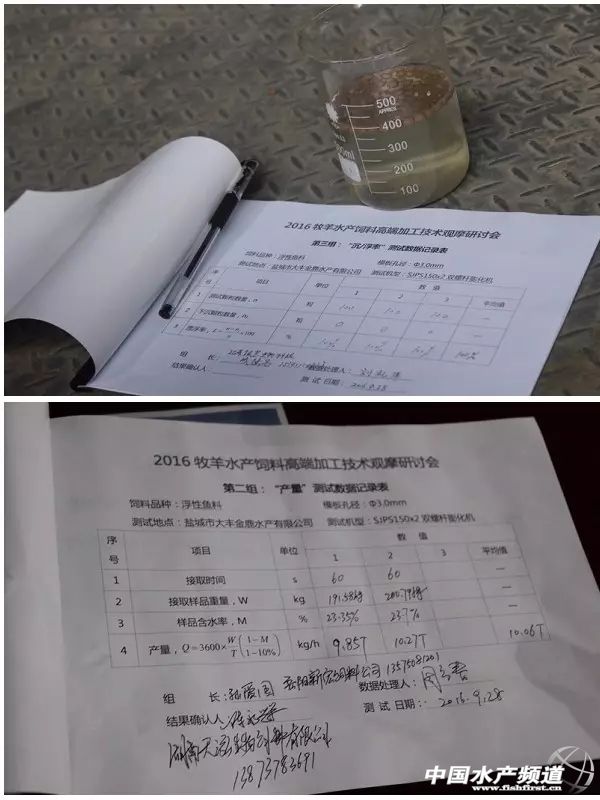 500
400
300
200
100
2016 牧羊水产饲料高端加工技术观摩研讨会
第三组：“沉/浮率”测试数据记录表
饲料品种：浮性鱼料 模板孔径：Φ3.0mm
测试地点：盐城市大丰金鹿水产有限公司 测试机型：SJPS150x2 双螺杆膨化机
序号 项目 单位 数 值
1 2 3 平均值
1 测试颗粒数量，n 粒 100 100 100 —
2 下沉颗粒数量，n₀ 粒 0 0 0 —
3 % 100% 100% 100% 100%
组 长：
结果确认人： 数据处理人：
测 试 日 期： 2016.9.28
2016 牧羊水产饲料高端加工技术观摩研讨会
第二组：“产量”测试数据记录表
饲料品种：浮性鱼料 模板孔径：Φ3.0mm
测试地点：盐城市大丰金鹿水产有限公司 测试机型：SJPS150x2 双螺杆膨化机
序号 项目 单位 数 值
1 2 3 平均值
1 接取时间 s 60 60 —
2 接取样品重量，W kg 191.58kg 200.79kg —
3 样品含水率，M % 23.35% 23.7% —
4 产量，Q=3600×W/T(1-M/1-10%) kg/h 9.85T 10.27T 10.06T
组 长：张爱国 岳阳新宏饲料公司 13575081201
结果确认人： 数据处理人：
测 试 日 期： 2016.9.28
13873783691
中国水产频道
www.fishfirst.cn